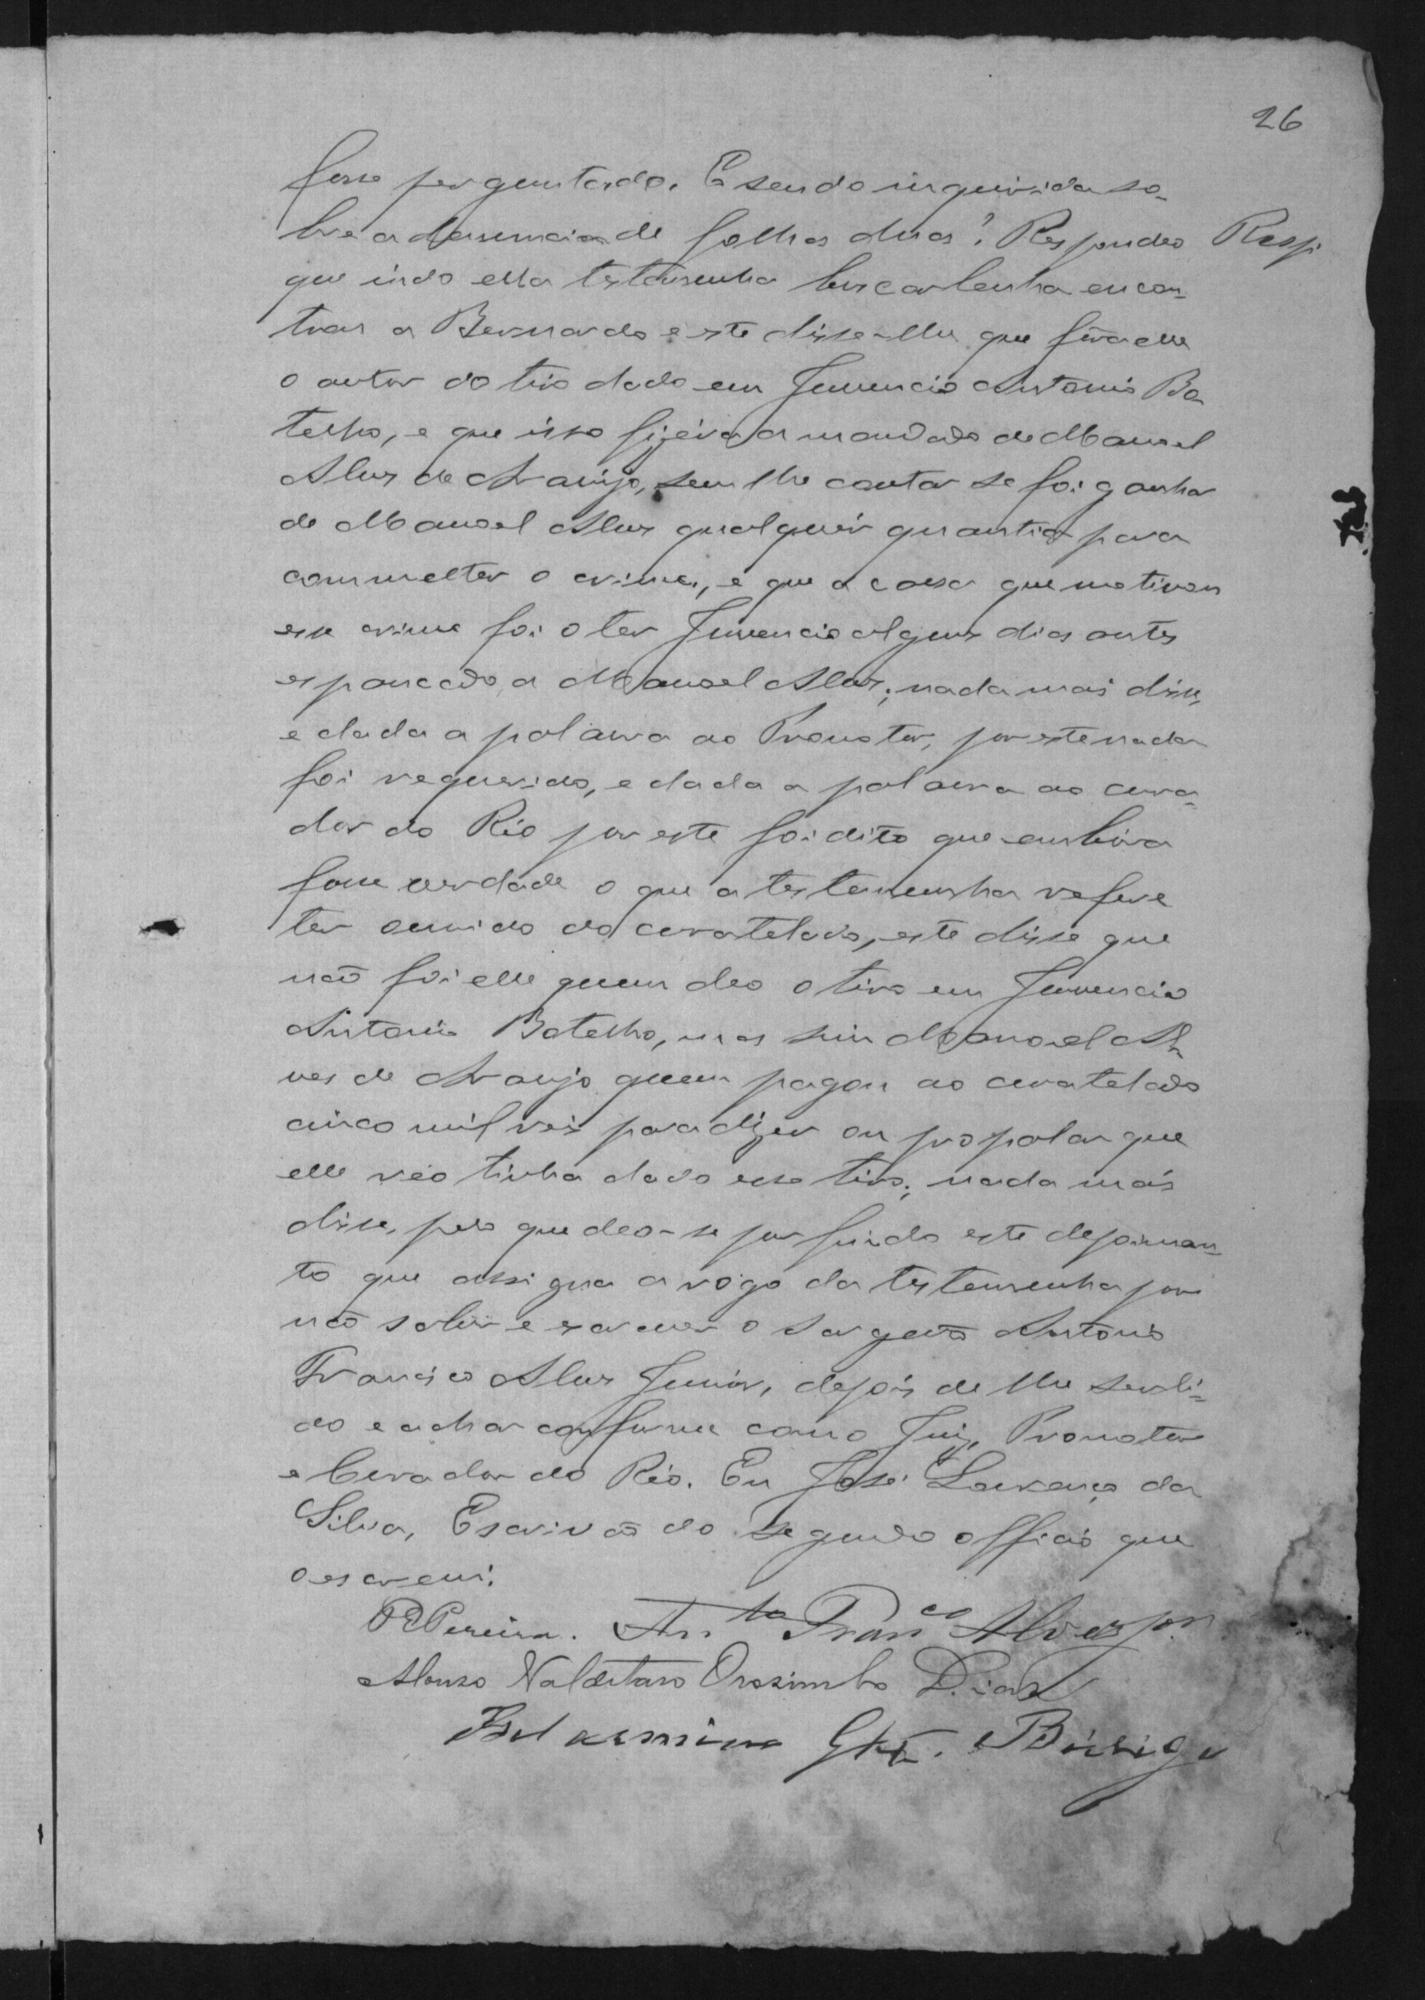 26
fosse perguntado. E sendo inquirida so-
bre a denuncia de folhas duas? Respondeo Resp.
que indo ella testemunha buscar lenha encon-
trou a Bernardo e este disse-lhe que fôra elle
o autor do tiro dado em Juvencio Antonio Bo-
telho, e que isso fizéra a mandado de Manoel
Alves de Araujo, sem lhe contar se foi ganhar
de Manoel Alves qualquér quantia para
commetter o crime, e que a cousa que motivou
esse crime foi o ter Juvencio alguns dias antes
espancado a Manoel Alves; nada mais disse,
e dada a palavra ao Promotor, por este nada
foi requerido, e dada a palavra ao cura-
dor do Réo por este foi dito que embóra
fosse verdade o que a testemunha refere
ter ouvido do curatelado, este disse que
não foi elle quem deo o tiro em Juvencio
Antonio Botelho, mas sim Manoel Al-
ves de Araujo quem pagou ao curatelado
cinco mil reis para dizer ou propalar que
elle réo tinha dado esse tiro; nada mais
disse, pelo que deo-se por findo este depoimen-
to que assigna a rogo da testemunha por
não saber escrever o Sargento Antonio
Francisco Alves Junior, depois de lhe ser li-
do e achar conforme com o Juiz, Promotor
e Curador do Réo. Eu José Lourenço da
Silva, Escrivão do segundo officio que
o escrevi.
R Pereira. Anto Franco Alves Jor
Alonso Valdetaro Orosimbo Dias